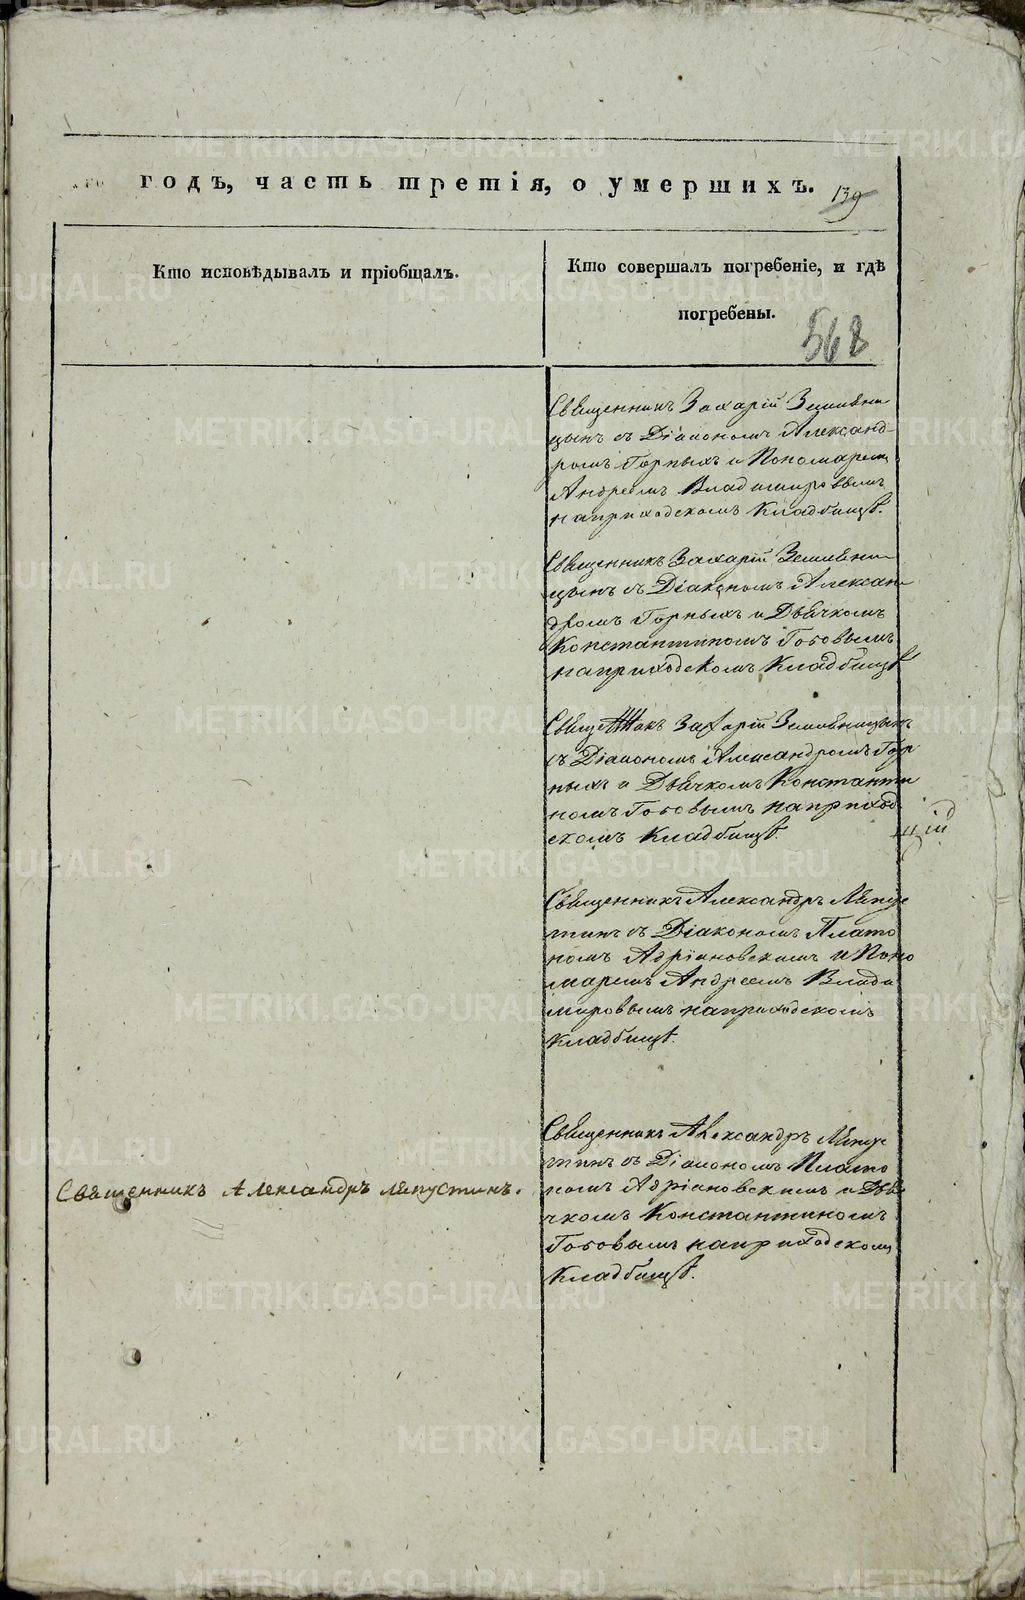 годъ, часть третія, о умершихъ.
139
Кто исповѣдывалъ и пріобщалъ.
Кто совершалъ погребеніе, и гдѣ
погребены.
568
Священникъ Захарій Земляни
цынъ съ Діакономъ Александ
ромъ Горныхъ и Пономаремъ
Андреемъ Владимировымъ
на приходскомъ кладбищѣ.
Священникъ Захарій Земляни
цынъ съ Діакономъ Алексан
дромъ Горныхъ и Дьячкомъ
Константиномъ Гововымъ
на приходскомъ кладбищѣ
Захарій Земляницынъ
съ Діакономъ Александромъ Гор
ныхъ и Дьячкомъ Константи
номъ Гововымъ на приход
скомъ кладбищѣ.
Священникъ Александръ Ляпус
тинъ съ Діакономъ Плато
номъ Адріановскимъ и Поно
маремъ Андреемъ Влади
мировымъ на приходскомъ
кладбищѣ.
Священникъ Александръ Ляпус
тинъ съ Діакономъ Плато
номъ Адріановскимъ и Дья
чкомъ Константиномъ
Гововымъ на приходскомъ
кладбищѣ.
Священникъ Александръ Ляпустинъ.
METRIKI.GASO-URAL.RU